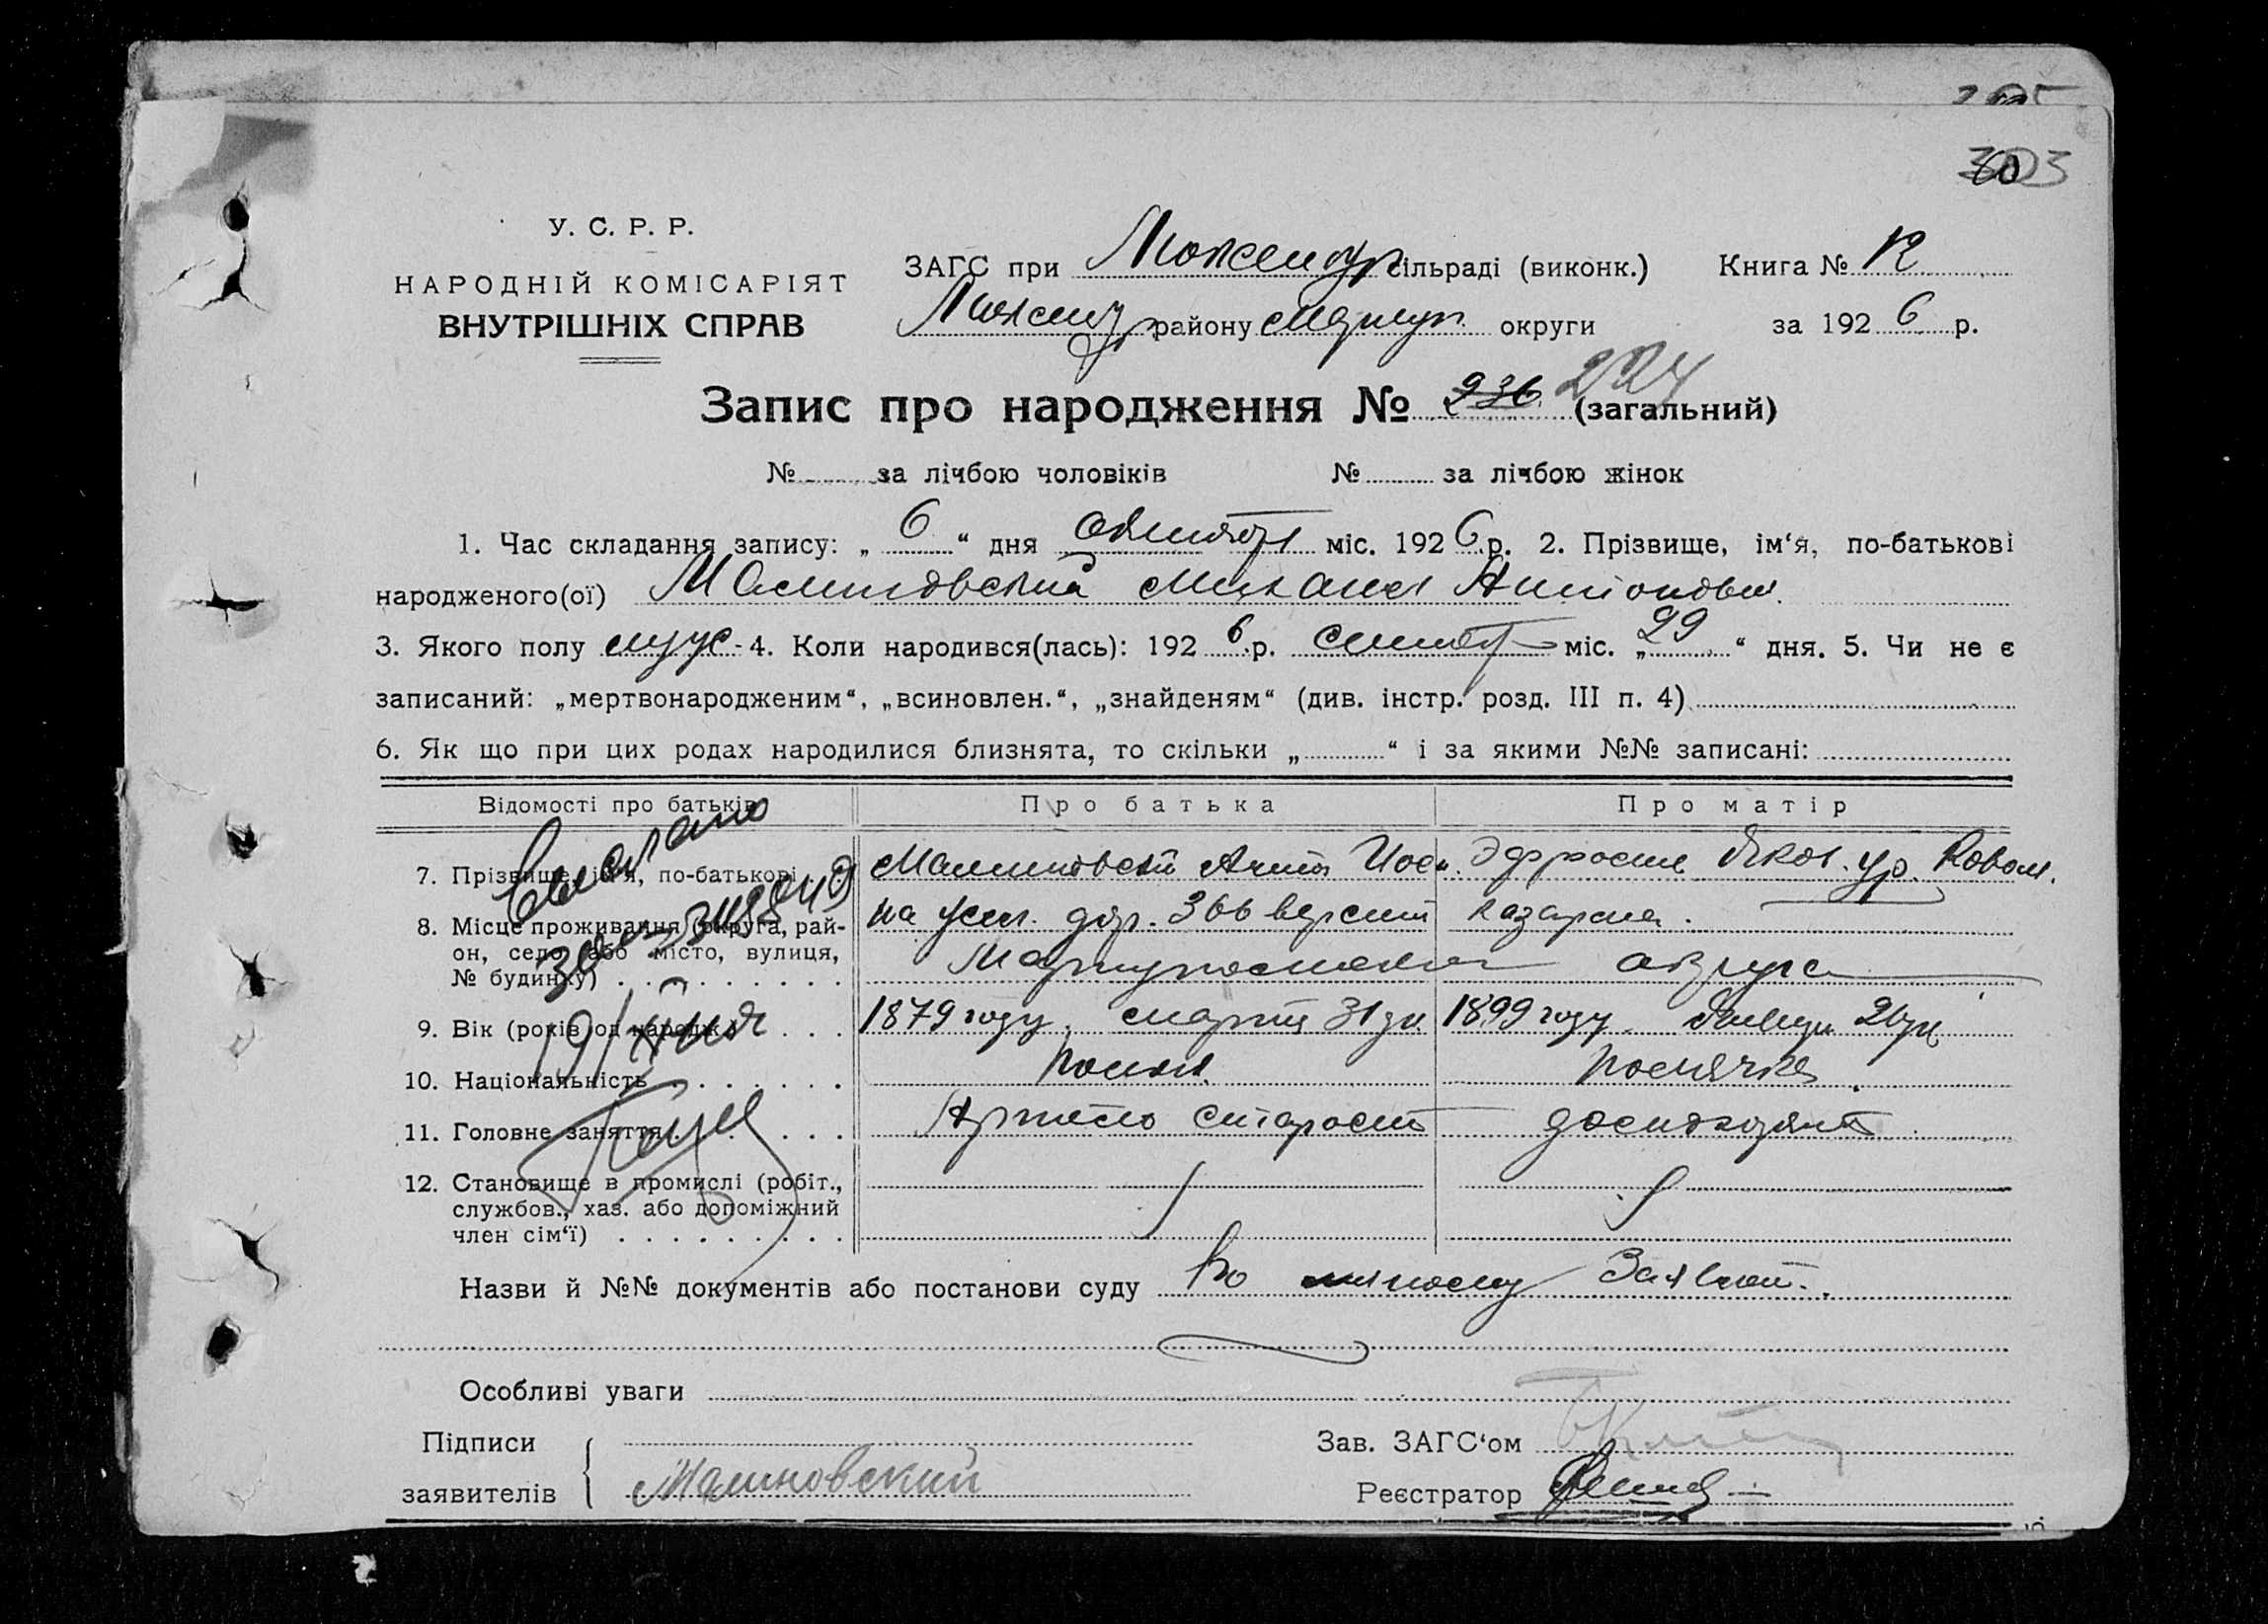 303
У. С. Р. Р.
НАРОДНІЙ КОМІСАРІЯТ
ВНУТРІШНІХ СПРАВ
ЗАГС при сільраді (виконк.) Книга №
району округи за 192 6 р.
Запис про народження № 236 224 (загальний)
№ за лічбою чоловіків № за лічбою жінок
1. Час складання запису: „ 6 “ дня октября міс. 192 6 р. 2. Прізвище, ім‘я, по-батькові
народженого(ої) Малиновский Михаил Антонович
3. Якого полу муж - 4. Коли народився(лась): 192 6 р. сентяб міс. „ 29 “ дня. 5. Чи не є
записаний: „мертвонародженим“, „всиновлен.“, „знайденям“ (див. інстр. розд. III п. 4)
6. Як що при цих родах народилися близнята, то скільки „ “ і за якими №№ записані:
Відомості про батьків Про батька Про матір
7. Прізвище, ім‘я, по-батькові Малиновский Антон Иос. ур. Ковал.
8. Місце проживання (округа, рай- на жел. дор. 366 версти казарма.
он, село або місто, вулиця, Мариупольская округа
№ будинку)
9. Вік (років од народж.) 1879 году, марта 31 дн. 1899 году
10. Національність поляк. полячка
11. Головне заняття Артель староста домохозяйк
12. Становище в промислі (робіт.,
службов., хаз. або допоміжний
член сім‘ї)
Назви й №№ документів або постанови суду По личному Заявлен.
Особливі уваги
Підписи
заявителів Малиновский
Зав. ЗАГС‘ом
Реєстратор